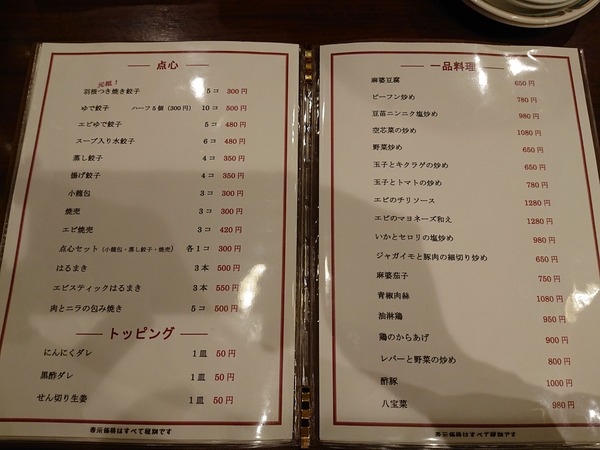 点心
元祖！
羽根つき焼き餃子 5コ 300円
ゆで餃子 ハーフ5個(300円) 10コ 500円
エビゆで餃子 5コ 480円
スープ入り水餃子 6コ 480円
蒸し餃子 4コ 350円
揚げ餃子 4コ 350円
小龍包 3コ 300円
焼売 3コ 300円
エビ焼売 3コ 420円
点心セット(小龍包・蒸し餃子・焼売) 各1コ 300円
はるまき 3本 500円
エビスティックはるまき 3本 550円
肉とニラの包み焼き 5コ 500円
トッピング
にんにくダレ 1皿 50円
黒酢ダレ 1皿 50円
せん切り生姜 1皿 50円
表示価格はすべて税別です
一品料理
麻婆豆腐 650円
ビーフン炒め 780円
豆苗ニンニク塩炒め 980円
空芯菜の炒め 1080円
野菜炒め 650円
玉子とキクラゲの炒め 650円
玉子とトマトの炒め 780円
エビのチリソース 1280円
エビのマヨネーズ和え 1280円
いかとセロリの塩炒め 980円
ジャガイモと豚肉の細切り炒め 650円
麻婆茄子 750円
青椒肉絲 1080円
油淋鶏 950円
鶏のからあげ 900円
レバーと野菜の炒め 800円
酢豚 1000円
八宝菜 980円
表示価格はすべて税別です